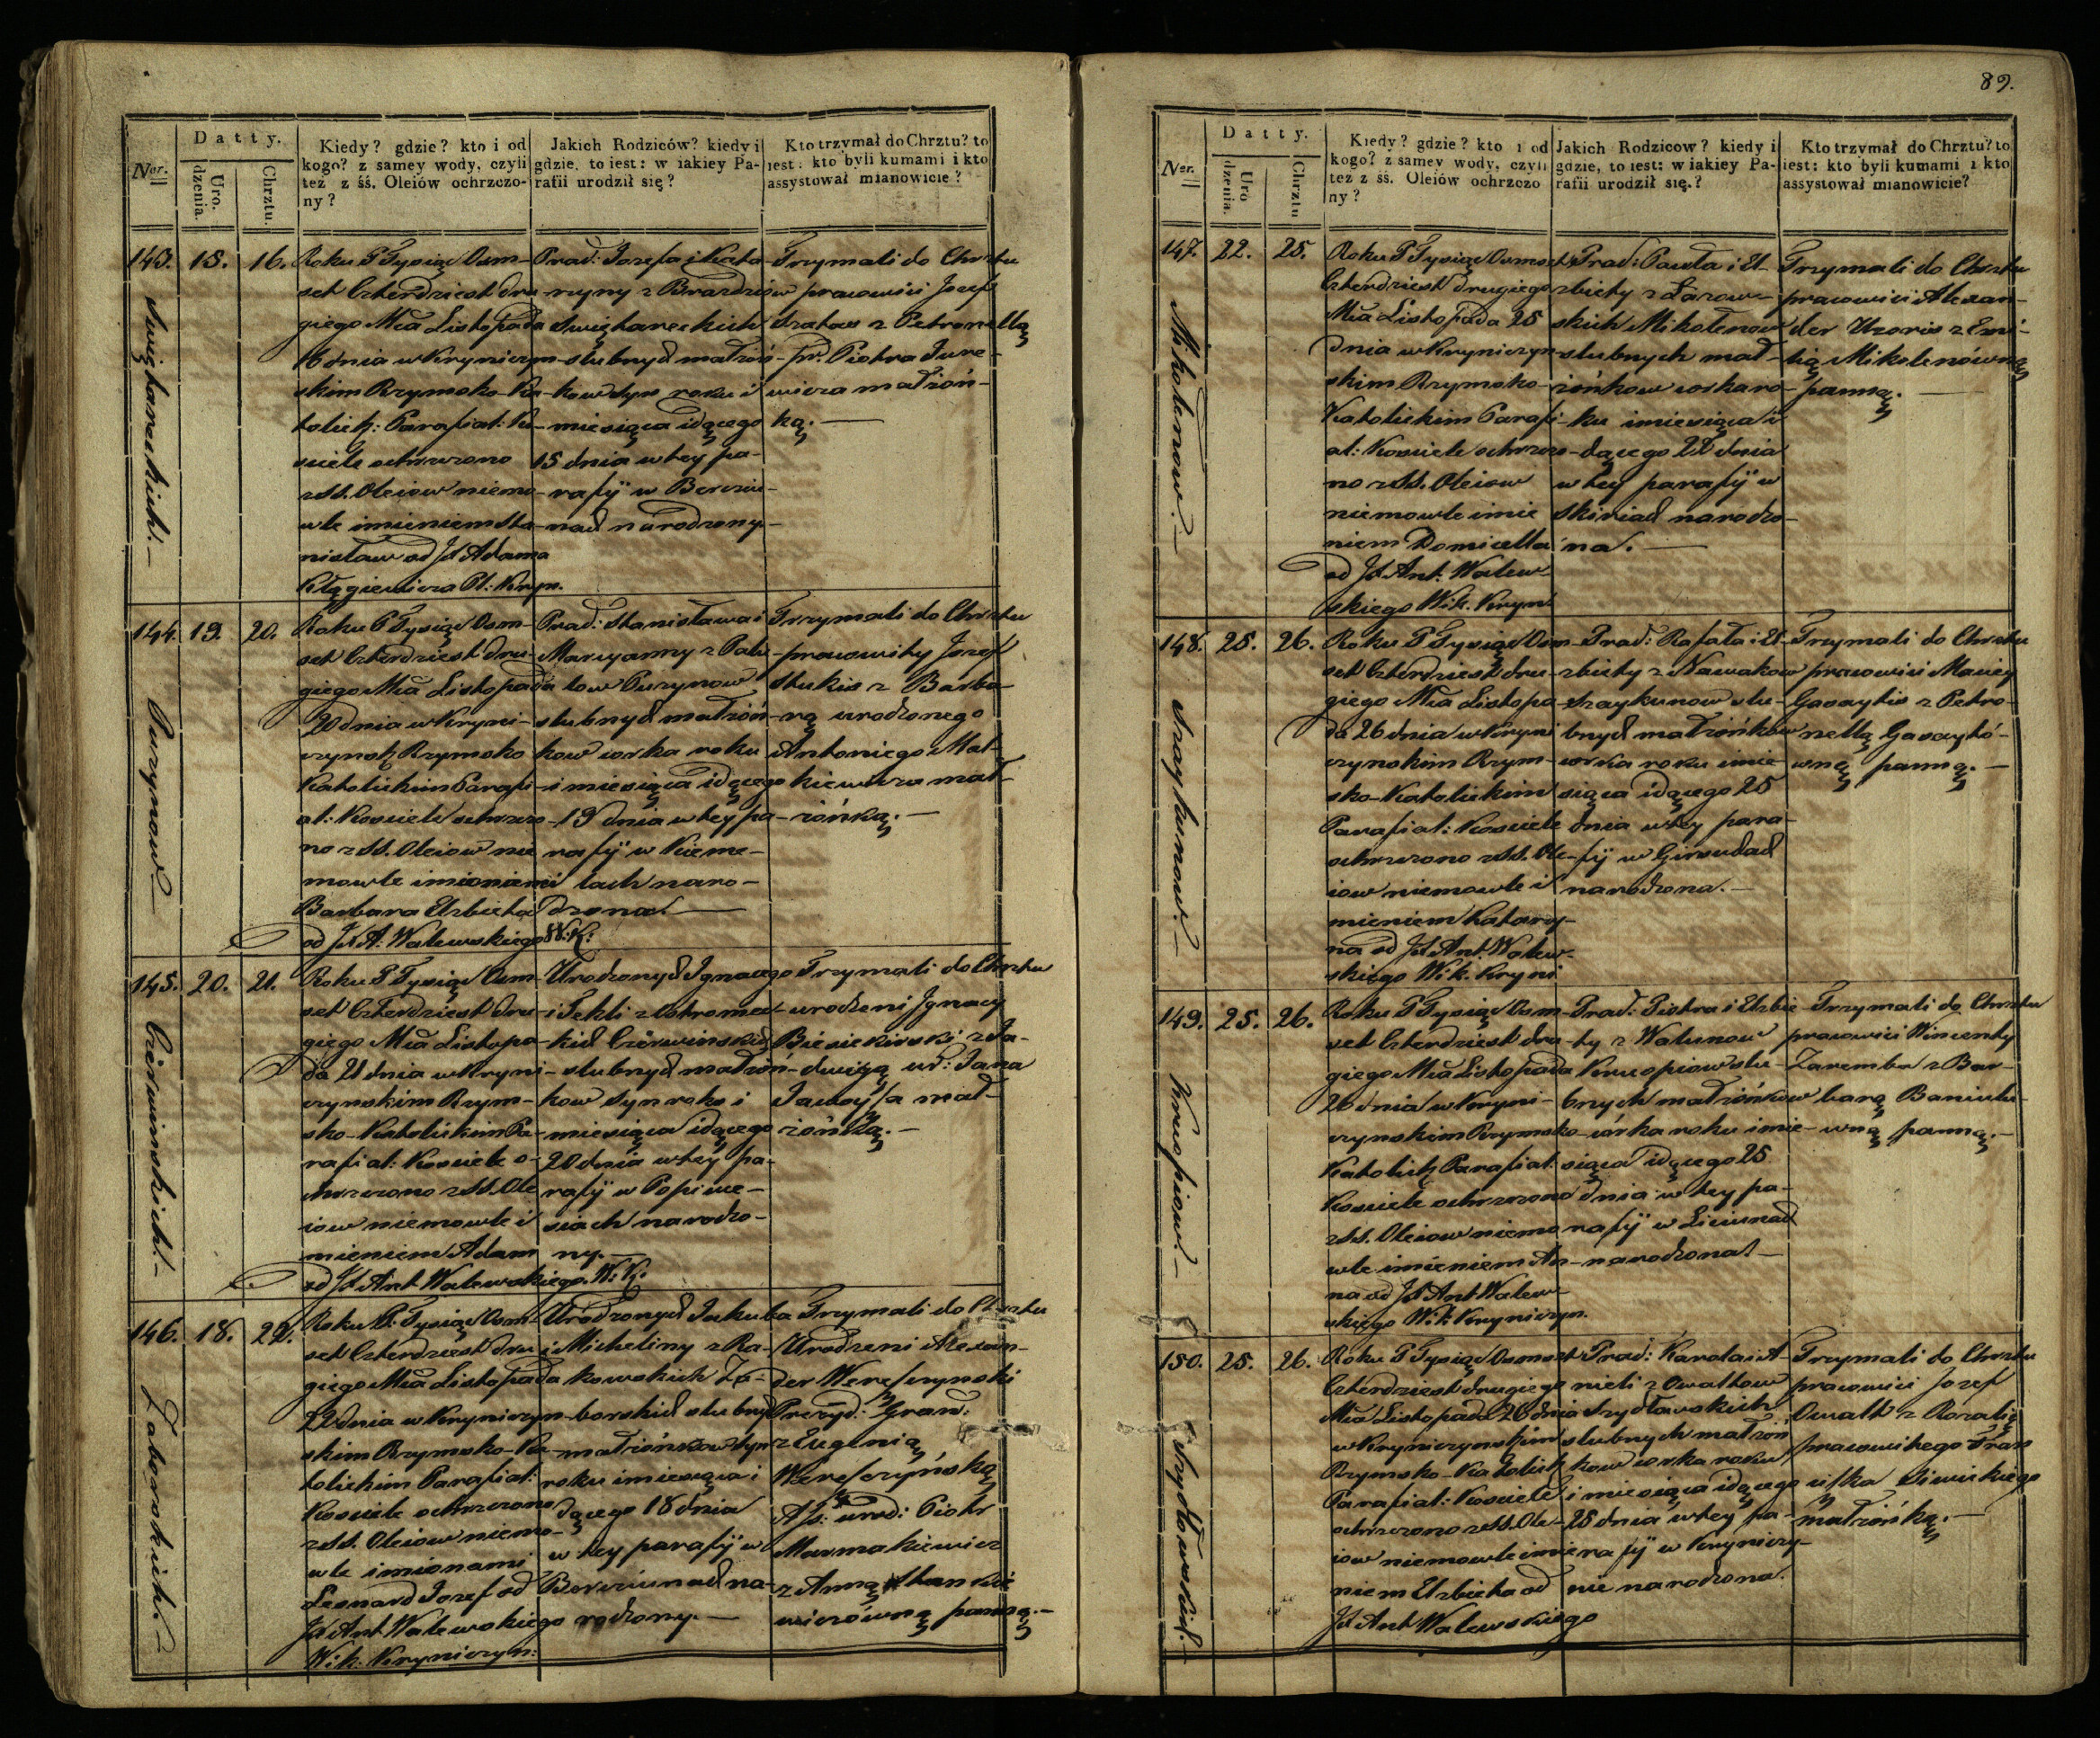 89.
Datty.
Ner.
Uro. dzenia.
Chrztu.
Kiedy? gdzie? kto i od
kogo? z samey wody, czyli
też z śś. Oleiów ochrzczo-
ny?
Jakich Rodziców? kiedy i
gdzie, to iest: w iakiey Pa-
rafii urodził się?
Kto trzymał do Chrztu? to
iest: kto byli kumami i kto
assystował mianowicie?
143. 15. 16.
Roku P Tysiąc Osm-
set Czterdziest dru-
giego Mca Listopada
16 dnia w Kryniczyn-
skim Rzymsko-Ka-
tolick: Parafial: Ko-
sciele ochrzczono
z SS. Oleiow niemo-
wle imieniem Sta-
nisław od Jd Adama
Pl: Kryn.
Prac: Jozefa i Kata-
rzyny z
slubnych małżon-
kow syn roku i
miesiąca idącego
15 dnia w tey pa-
rafij w
narodzony.
Trzymali do Chrztu
pracowici Jozef
z Petronellą
pr. Piotra Jure-
wicza małżon-
ką.
144. 19. 20.
Purynow
Roku P Tysiąc Osm-
set Czterdziest dru-
giego Mca Listopada
20 dnia w Kryni-
czynsk Rzymsko
Katolickim Parafi-
al: Kosciele ochrzczo-
no z SS. Oleiow nie
mowle imionami
Barbara Elzbieta
od Jd A. Walewskiego W: K:
Prac: Stanisława i
Maryanny z Pale-
tow Purynow
slubnych małżon-
kow corka roku
i miesiąca idącego
19 dnia w tey pa-
rafij w Kieme-
lach naro-
dzona.
Trzymali do Chrztu
pracowity Jozef
Stukis z Barba-
rą urodzonego
Antoniego Mac-
kiewicza mał-
żonką.
145. 20. 21.
Czerwinskich.
Roku P Tysiąc Osm-
set Czterdziest dru-
giego Mca Listopa-
da 21 dnia w Kryni-
czynskim Rzym-
sko-Katolickim Pa-
rafial: Kosciele o-
chrzczono z SS. Ole
iow niemowle i
mieniem Adam
od Jd Ant Walewskiego W: K:
Urodzonych Ignacego
i Tekli z Ostromec-
kich Czerwinskich
slubnych małżon-
kow syn roku i
miesiąca idącego
20 dnia w tey pa-
rafij w Popiwe-
siach narodzo-
ny.
Trzymali do Chrztu
urodzeni Ignacy
Biesiekirski z Ja-
dwigą ur: Jana
mał-
żonką.
146. 18. 22.
Zaborskich.
Roku P. Tysiąc Osm-
set Czterdziest dru
giego Mca Listopada
22 dnia w Kryniczyn-
skim Rzymsko-Ka-
tolickim Parafial:
Kosciele ochrzczono
z SS. Oleiow niemo-
wle imionami
Leonard Jozef od
Jd Ant Walewskiego
Wik. Kryniczyn:
Urodzonych Jakuba
i Micheliny z Ra-
kowskich Za-
borskich slubnych
małżonkow syn
roku i miesiąca i
dącego 18 dnia
w tey parafij w
na-
rodzony.
Trzymali do Chrztu
Urodzeni Alexan-
der Wereszynski
Prezyd: Gran:
z Eugenią
Wereszyńską
As: urod: Piotr
Marmakiewicz
z Anną Stankie
wiczówną panną.
Datty.
Ner.
Uro dzenia.
Chrztu
Kiedy? gdzie? kto i od
kogo? z samey wody, czyli
też z śś. Oleiów ochrzczo
ny?
Jakich Rodzicow? kiedy i
gdzie, to iest: w iakiey Pa-
rafii urodził się.?
Kto trzymał do Chrztu? to
iest: kto byli kumami i kto
assystował mianowicie?
147. 22. 25.
Mikolanow.
Roku P Tysiąc Osmset
Czterdziest drugiego
Mca Listopada 25
dnia w Kryniczyn-
skim Rzymsko-
Katolickim Parafi-
al: Kosciele ochrzczo-
no z SS. Oleiow
niemowle imie
niem Domicella
od Jd Ant. Walew
skiego Wik. Kryn
Prac: Pawła i El-
zbiety z Łazow-
skich Mikolenow
slubnych mał-
żonkow corka ro-
ku i miesiąca i
dącego 22 dnia
w tey parafij w
narodzo-
na.
Trzymali do Chrztu
pracowici Alexan-
der z Emi-
lią Mikolenówną
panną.
148. 25. 26.
Szaykunow.
Roku P Tysiąc Osm-
set Czterdziest dru-
giego Mca Listopa-
da 26 dnia w Kryni
czynskim Rzym-
sko-Katolickim
Parafial: Kosciele
ochrzczono z SS. Ole-
iow niemowle i
mieniem Katarzy-
na od Jd Ant. Walew-
skiego Wik. Kryni
Prac: Rafała i El-
zbiety z Nowakow
Szaykunow slu-
bnych małżonkow
corka roku i mie
siąca idącego 25
dnia w tey para-
fij w
narodzona.
Trzymali do Chrztu
pracowici Maciey
Gasaytis z Petro-
nellą Gasaytó-
wną panną.
149. 25. 26.
Krucpiow.
Roku P Tysiąc Osm-
set Czterdziest dru-
giego Mca Listopada
26 dnia w Kryni-
czynskim Rzymsko
Katolick Parafial:
Kosciele ochrzczono
z SS. Oleiow niemo
wle imieniem An-
na od Jd Ant Walew-
skiego Wik Kryniczyn.
Prac: Piotra i Elzbie
ty z Walunow
slu-
bnych małżonkow
córka roku i mie-
siąca idącego 25
dnia w tey pa-
rafij w
narodzona.
Trzymali do Chrztu
pracowici Wincenty
Zaremba z Bar-
barą Baniule-
wną panną.
150. 25. 26.
Szydłowskich.
Roku P Tysiąc Osmset
Czterdziest drugiego
Mca Listopada 26 dnia
w Kryniczynskim
Rzymsko-Katolick
Parafial: Kosciele
ochrzczono z SS. Ole-
iow niemowle imie
niem Elzbieta od
Jd Ant Walewskiego
Prac: Karola i A-
nieli z Owaltow
Szydławskich
slubnych małżon
kow corka roku
i miesiąca idącego
25 dnia w tey pa-
rafij w Kryniczy-
nie narodzona.
Trzymali do Chrztu
pracowici Jozef
Owalt z Rozalią
pracowitego Fran
ciszka Siwickiego
małżonką.